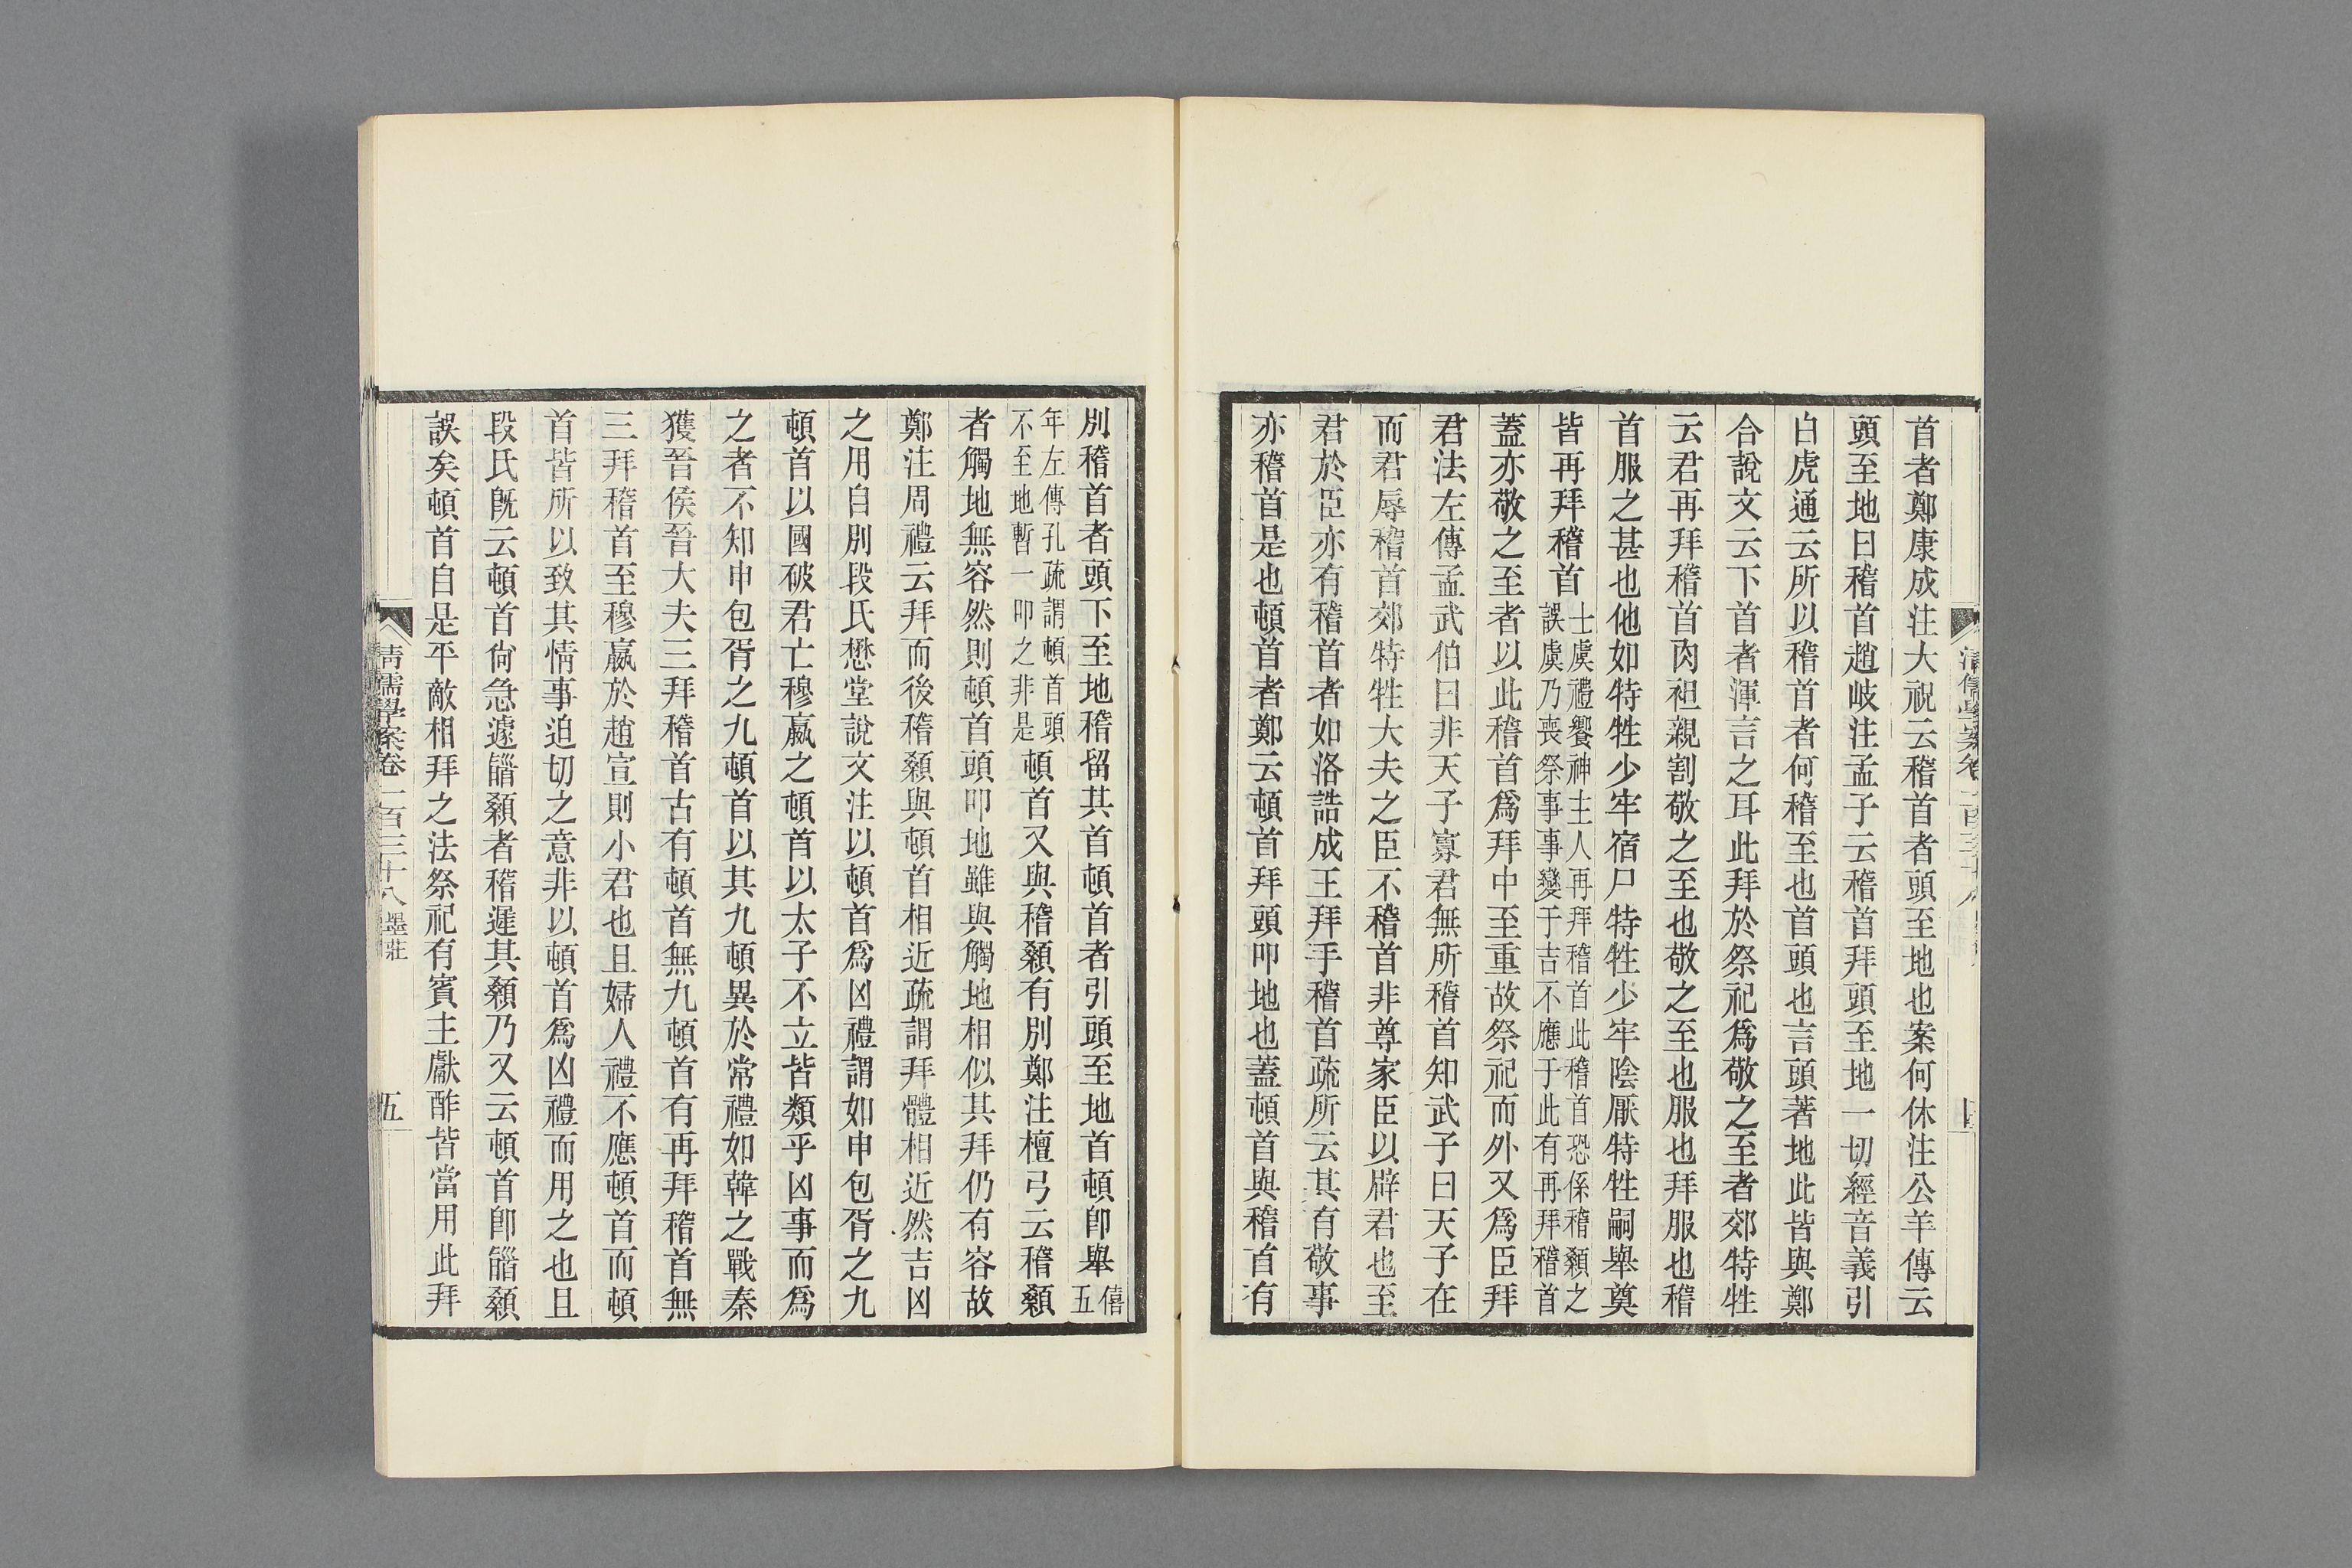 首者鄭康成注大祝云稽首者頭至地也案何休注公羊傳云
頭至地曰稽首趙岐注孟子云稽首拜頭至地一切經音義引
白虎通云所以稽首者何稽至也首頭也言頭著地此皆與鄭
合說文云下首者渾言之耳此拜於祭祀爲敬之至者郊特牲
云君再拜稽首肉袒親割敬之至也敬之至也服也拜服也稽
首服之甚也他如特牲少牢宿尸特牲少牢陰厭特牲嗣舉奠
皆再拜稽首
士虞禮饗神主人再拜稽首此稽首恐係稽顙之
誤虞乃喪祭事事變于吉不應于此有再拜稽首
蓋亦敬之至者以此稽首爲拜中至重故祭祀而外又爲臣拜
君法左傳孟武伯曰非天子寡君無所稽首知武子曰天子在
而君辱稽首郊特牲大夫之臣不稽首非尊家臣以辟君也至
君於臣亦有稽首者如洛誥成王拜手稽首疏所云其有敬事
亦稽首是也頓首者鄭云頓首拜頭叩地也蓋頓首與稽首有
別稽首者頭下至地稽留其首頓首者引頭至地首頓卽舉
僖
五
年左傳孔疏謂頓首頭
不至地暫一叩之非是
頓首又與稽顙有別鄭注檀弓云稽顙
者觸地無容然則頓首頭叩地雖與觸地相似其拜仍有容故
鄭注周禮云拜而後稽顙與頓首相近疏謂拜體相近然吉凶
之用自別段氏懋堂說文注以頓首爲凶禮謂如申包胥之九
頓首以國破君亡穆嬴之頓首以太子不立皆類乎凶事而爲
之者不知申包胥之九頓首以其九頓異於常禮如韓之戰秦
獲晉侯晉大夫三拜稽首古有頓首無九頓首有再拜稽首無
三拜稽首至穆嬴於趙宣則小君也且婦人禮不應頓首而頓
首皆所以致其情事迫切之意非以頓首爲凶禮而用之也且
段氏旣云頓首尙急遽䭫顙者稽遲其顙乃又云頓首卽䭫顙
誤矣頓首自是平敵相拜之法祭祀有賓主獻酢皆當用此拜
清儒學案卷一百三十八 墨莊
五